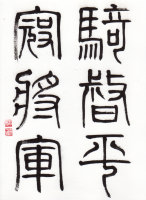 騎督平
寇將軍